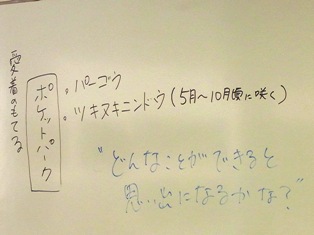 愛着のもてる
ポケットパーク
・パーゴラ
・ツキヌキニンドウ(5月〜10月頃に咲く)
"どんなことができると
思い出になるかな?"